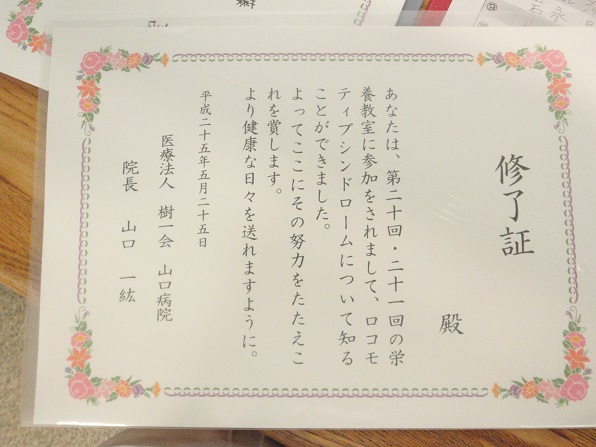 修了証
殿
あなたは、第二十回・二十一回の栄
養教室に参加をされまして、ロコモ
ティブシンドロームについて知る
ことができました。
よってここにその努力をたたえこ
れを賞します。
より健康な日々を送れますように。
平成二十五年五月二十五日
医療法人 樹一会 山口病院
院長 山口 一紘